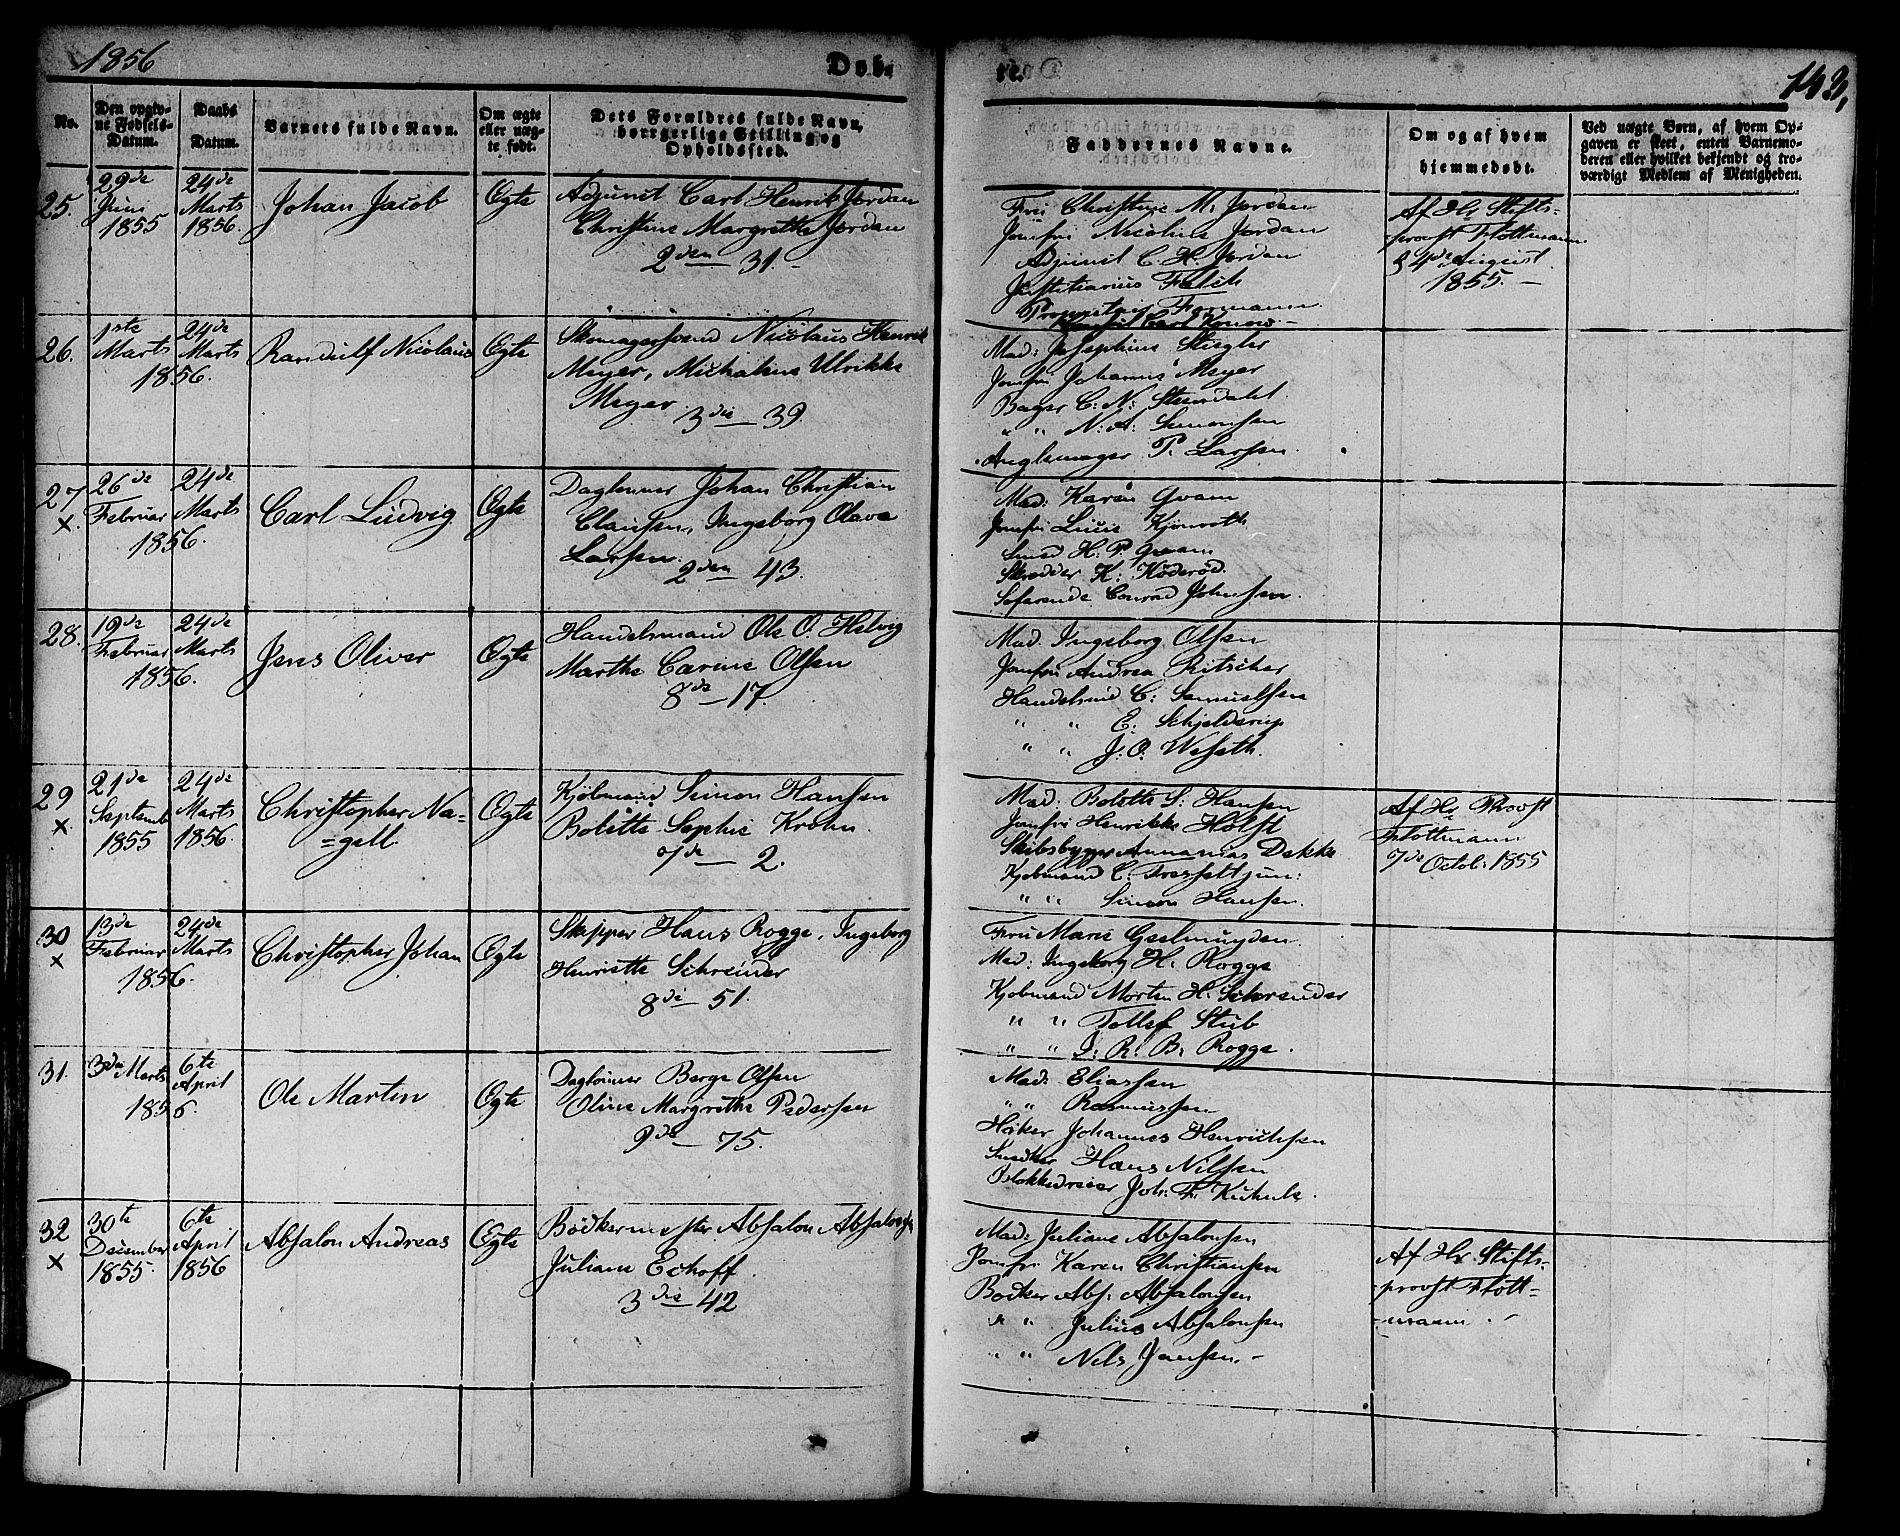 1856
Døb-
te.
143,
No.
Den opgiv-
ne Fødsels-
Datum.
Daabs
Datum.
Barnets fulde Navn.
Om ægte
eller uæg-
te født.
Dets Forældres fulde Navn,
borgerlige Stilling og
Opholdssted.
Faddernes Navne.
Om og af hvem
hjemmedøbt.
Ved uægte Børn, af hvem Op-
gaven er skeet, enten Barnemo-
deren eller hvilket bekjendt og tro-
værdigt Medlem af Menigheden.
25.
29de
Juni
1855
24de
Marts
1856.
Johan Jacob
Ægte
Adjunct Carl Henrik Jordan
Christine Margrethe Jordan
2den — 31.
Fru Christine M. Jordan
Jomfru Nicoline Jordan
Adjunct C. H. Jordan
Justitiarius Falch
Proprietair Formann
Af Hr Stifts-
provst Flottmann
August
1855. —
26.
1ste
Marts
24de
Marts
1856.
Randulf Nicolaus
Ægte
Skomagersvend Nicolaus Henrik
Meyer, Michaline Ulrikke
Meyer
3die — 39.
Mad: Josephine Stiegler
Jomfru Johanne Meyer
Bager C. N. Steendahl.
" " N. A. Simonsen
P. Larsen.
27
x.
26de
Februar
24de
Marts
1856.
Carl Ludvig
Ægte
Dagleiner Johan Christian
Clausen, Ingeborg Olava
Larsen.
2den — 43.
Mad: Karen Qvam
Jomfru Lucie
Smed H. P. Qvam
Skrædder K: Køderød.
Søfarende Conrad Johnsen.
28.
19de
Februar
24de
Marts
1856.
Jens Oliver
Ægte
Handelsmand Ole O. Helvig
Marthe Carine Olsen
8de — 17.
Mad. Ingeborg Olsen
Jomfru Andrea Ritscher
Handelsmd C: Samuelsen
" " E. Schjelderup
" " J. O. Wefseth.
29
x.
21de
Septemb
1855
24de
Marts
1856.
Christopher Na=
=gell
Ægte
Kjøbmand Simon Hansen
Bolette Sophie Krohn.
7de — 2.
Mad: Bolette S: Hansen
Jomfru Henrikke Holst
Skibsbygger Annanias Dekke
Kjøbmand C. Tresselt jun:
" " Simon Hansen.
Af Hr Provst
Flottmann
7de Octob: 1855
30
x
13de
Februar
24de
Marts
1856.
Christopher Johan
Ægte
Skipper Hans Rogge, Ingeborg
Henriette Schreuder
8de — 51.
Fru Marie Geelmuyden.
Mad: Ingeborg H. Rogge
Kjøbmand Morten H. Schreuder
" " Tollef Stub
" " D. R. B. Rogge.
31.
3die Marts
6te
April
1856.
Ole Martin
Ægte
Dagleiner Berge Olsen
Oline Margrethe Pedersen
9de — 75.
Mad: Eliassen
" " Rasmussen
Høker Johannes Henrichsen
Snedker Hans Nilsen
Blokkedreier Joh: F. Kuhnle.
32
x
30te
December
1855.
6te
April
1856
Absalon Andreas
Ægte
Bødkermester Absalon Absalonsen
Juliane Echoff.
3die — 42
Mad: Juliane Absalonsen
Jomfru Karen Christiansen
Bødker Abs: Absalonsen
" " Julius Absalonsen
" " Nils Jansen. —
Af Hr Stifts-
provst Flott=
mann.